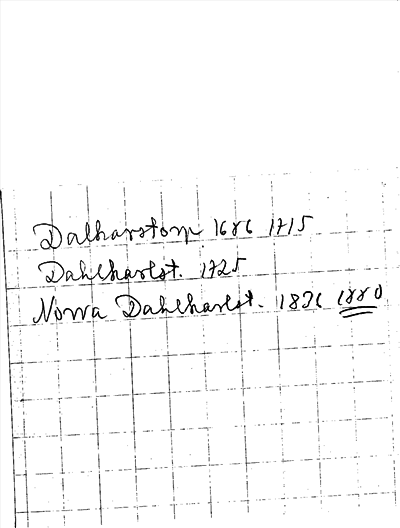 Dalharstorp 1686 1715
Dahlharlst. 1725
Norra Dahlharlst. 1826 1880